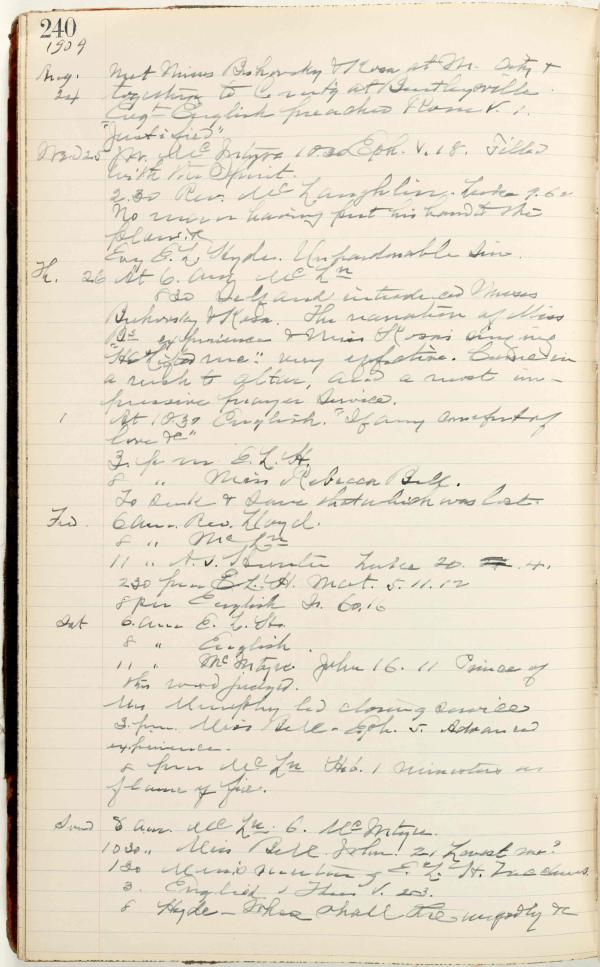 240
1909
Aug. Met Misses Bishovsky & Rosa at M. &
24 together to at Bentleyville.
Evg- English preached Rom V. 1.
"Justified"
Wed 25 Mc Intyre 10.30 Eph. V. 18. Filled
with the Spirit.
2.30 Rev. Mc Laughlin. Luke 9.62
No man having put his hand to the
plow &c
Evg E. L. Hyde. Unpardonable Sin.
Th. 26 At 6. Mc Ln
8.30 Self and introduced Misses
& Rosa. The narration of Miss
Bs experience & Miss Rosa's singing
"He lifted me" very effective.
a rush to altar, and a most im-
pressive prayer service.
1 At 10.30 English. "If any comfort of
love &c"
3. p m. E. L. H.
8 " Miss Rebecca Bell.
To seek & save that which was lost.
Fri. 6 am. Rev. Lloyd.
8 " Mc Ln
11 " A. S. Hunter Luke 20. 4.
2.30 pm E L. H. Mat. 5. 11. 12
8 pm English Is. 60.16
Sat 6. am E. L. H.
8 " English.
11 " McIntyre John 16. 11 Prince of
this world judged.
Mrs Murphy led closing service
3. pm. Miss Bell - Eph. 5. Advanced
experience.
8 pm Mc Ln Heb. 1 ministers as
flame of fire.
Sund 8 am. Mc Ln. 6. McIntyre.
10 30 " Miss Bell. John. 21 Lovest me?
1 30 E. L. H.
3. English 1 Thes V. 23.
8 Hyde -